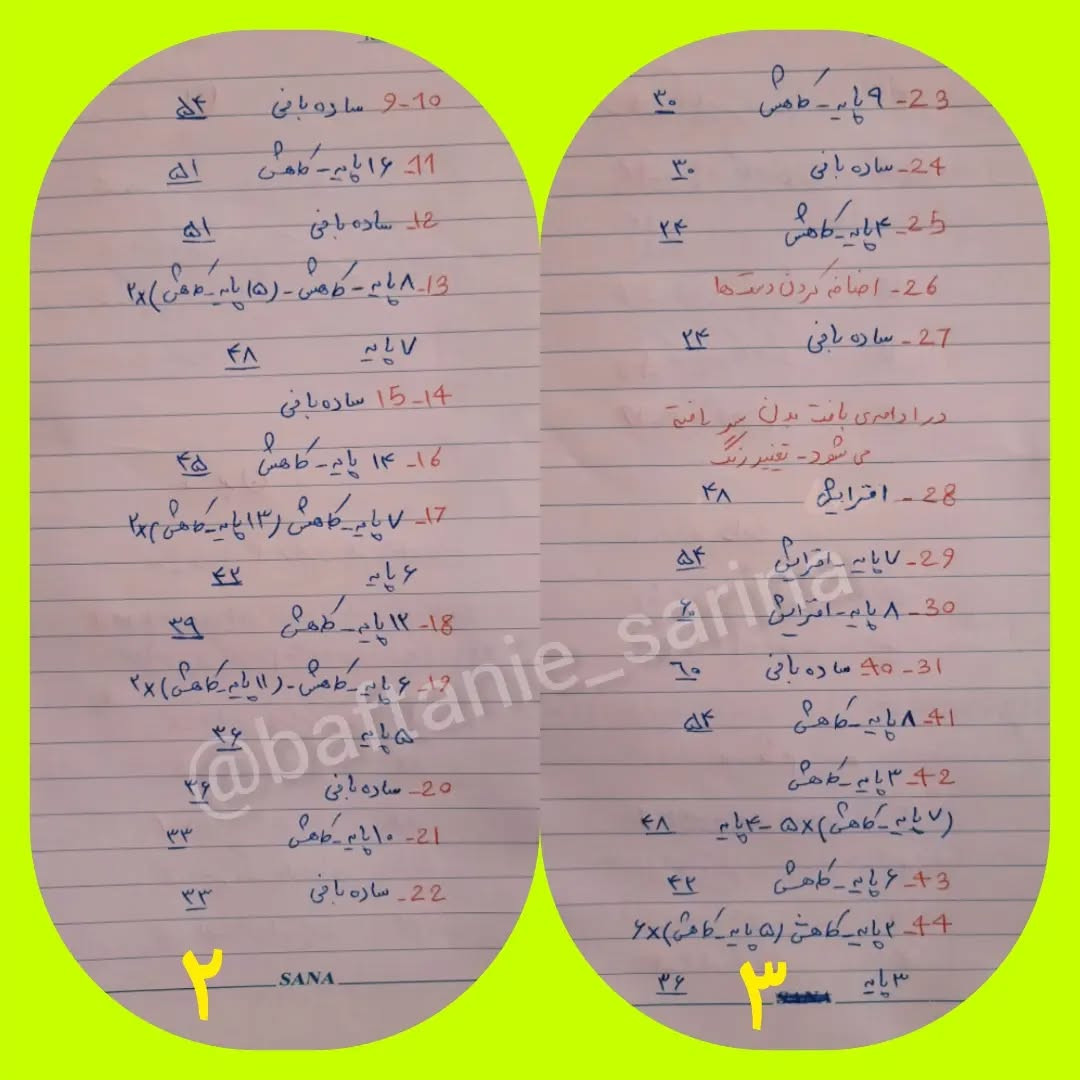 9-10 ساده بافی ۵۴
11- ۱۶ پایه - کاهش ۵۱
12- ساده بافی ۵۱
13- ۸ پایه - کاهش - (۱۵ پایه - کاهش)×۲
۷ پایه ۴۸
14-15 ساده بافی
16- ۱۴ پایه - کاهش ۴۵
17- ۷ پایه - کاهش (۱۳ پایه - کاهش)×۲
۶ پایه ۴۲
18- ۱۲ پایه - کاهش ۳۹
19- ۶ پایه - کاهش - (۱۱ پایه - کاهش)×۲
۵ پایه ۳۶
20- ساده بافی ۳۶
21- ۱۰ پایه - کاهش ۳۳
22- ساده بافی ۳۳
SANA
۲
23- ۹ پایه - کاهش ۳۰
24- ساده بافی ۳۰
25- ۴ پایه - کاهش ۲۴
26- اضافه کردن دست‌ها
27- ساده بافی ۲۴
در ادامه‌ی بافت بدن سر بافته
می شود - تغییر رنگ
28- افزایش ۴۸
29- ۷ پایه - افزایش ۵۴
30- ۸ پایه - افزایش ۶۰
31-40 ساده بافی ۶۰
41- ۸ پایه - کاهش ۵۴
42- ۳ پایه - کاهش
(۷ پایه - کاهش)×۵ - ۴ پایه ۴۸
43- ۶ پایه - کاهش ۴۲
44- ۲ پایه - کاهش (۵ پایه - کاهش)×۶
۳ پایه ۳۶
۳
@baftanie_sarina